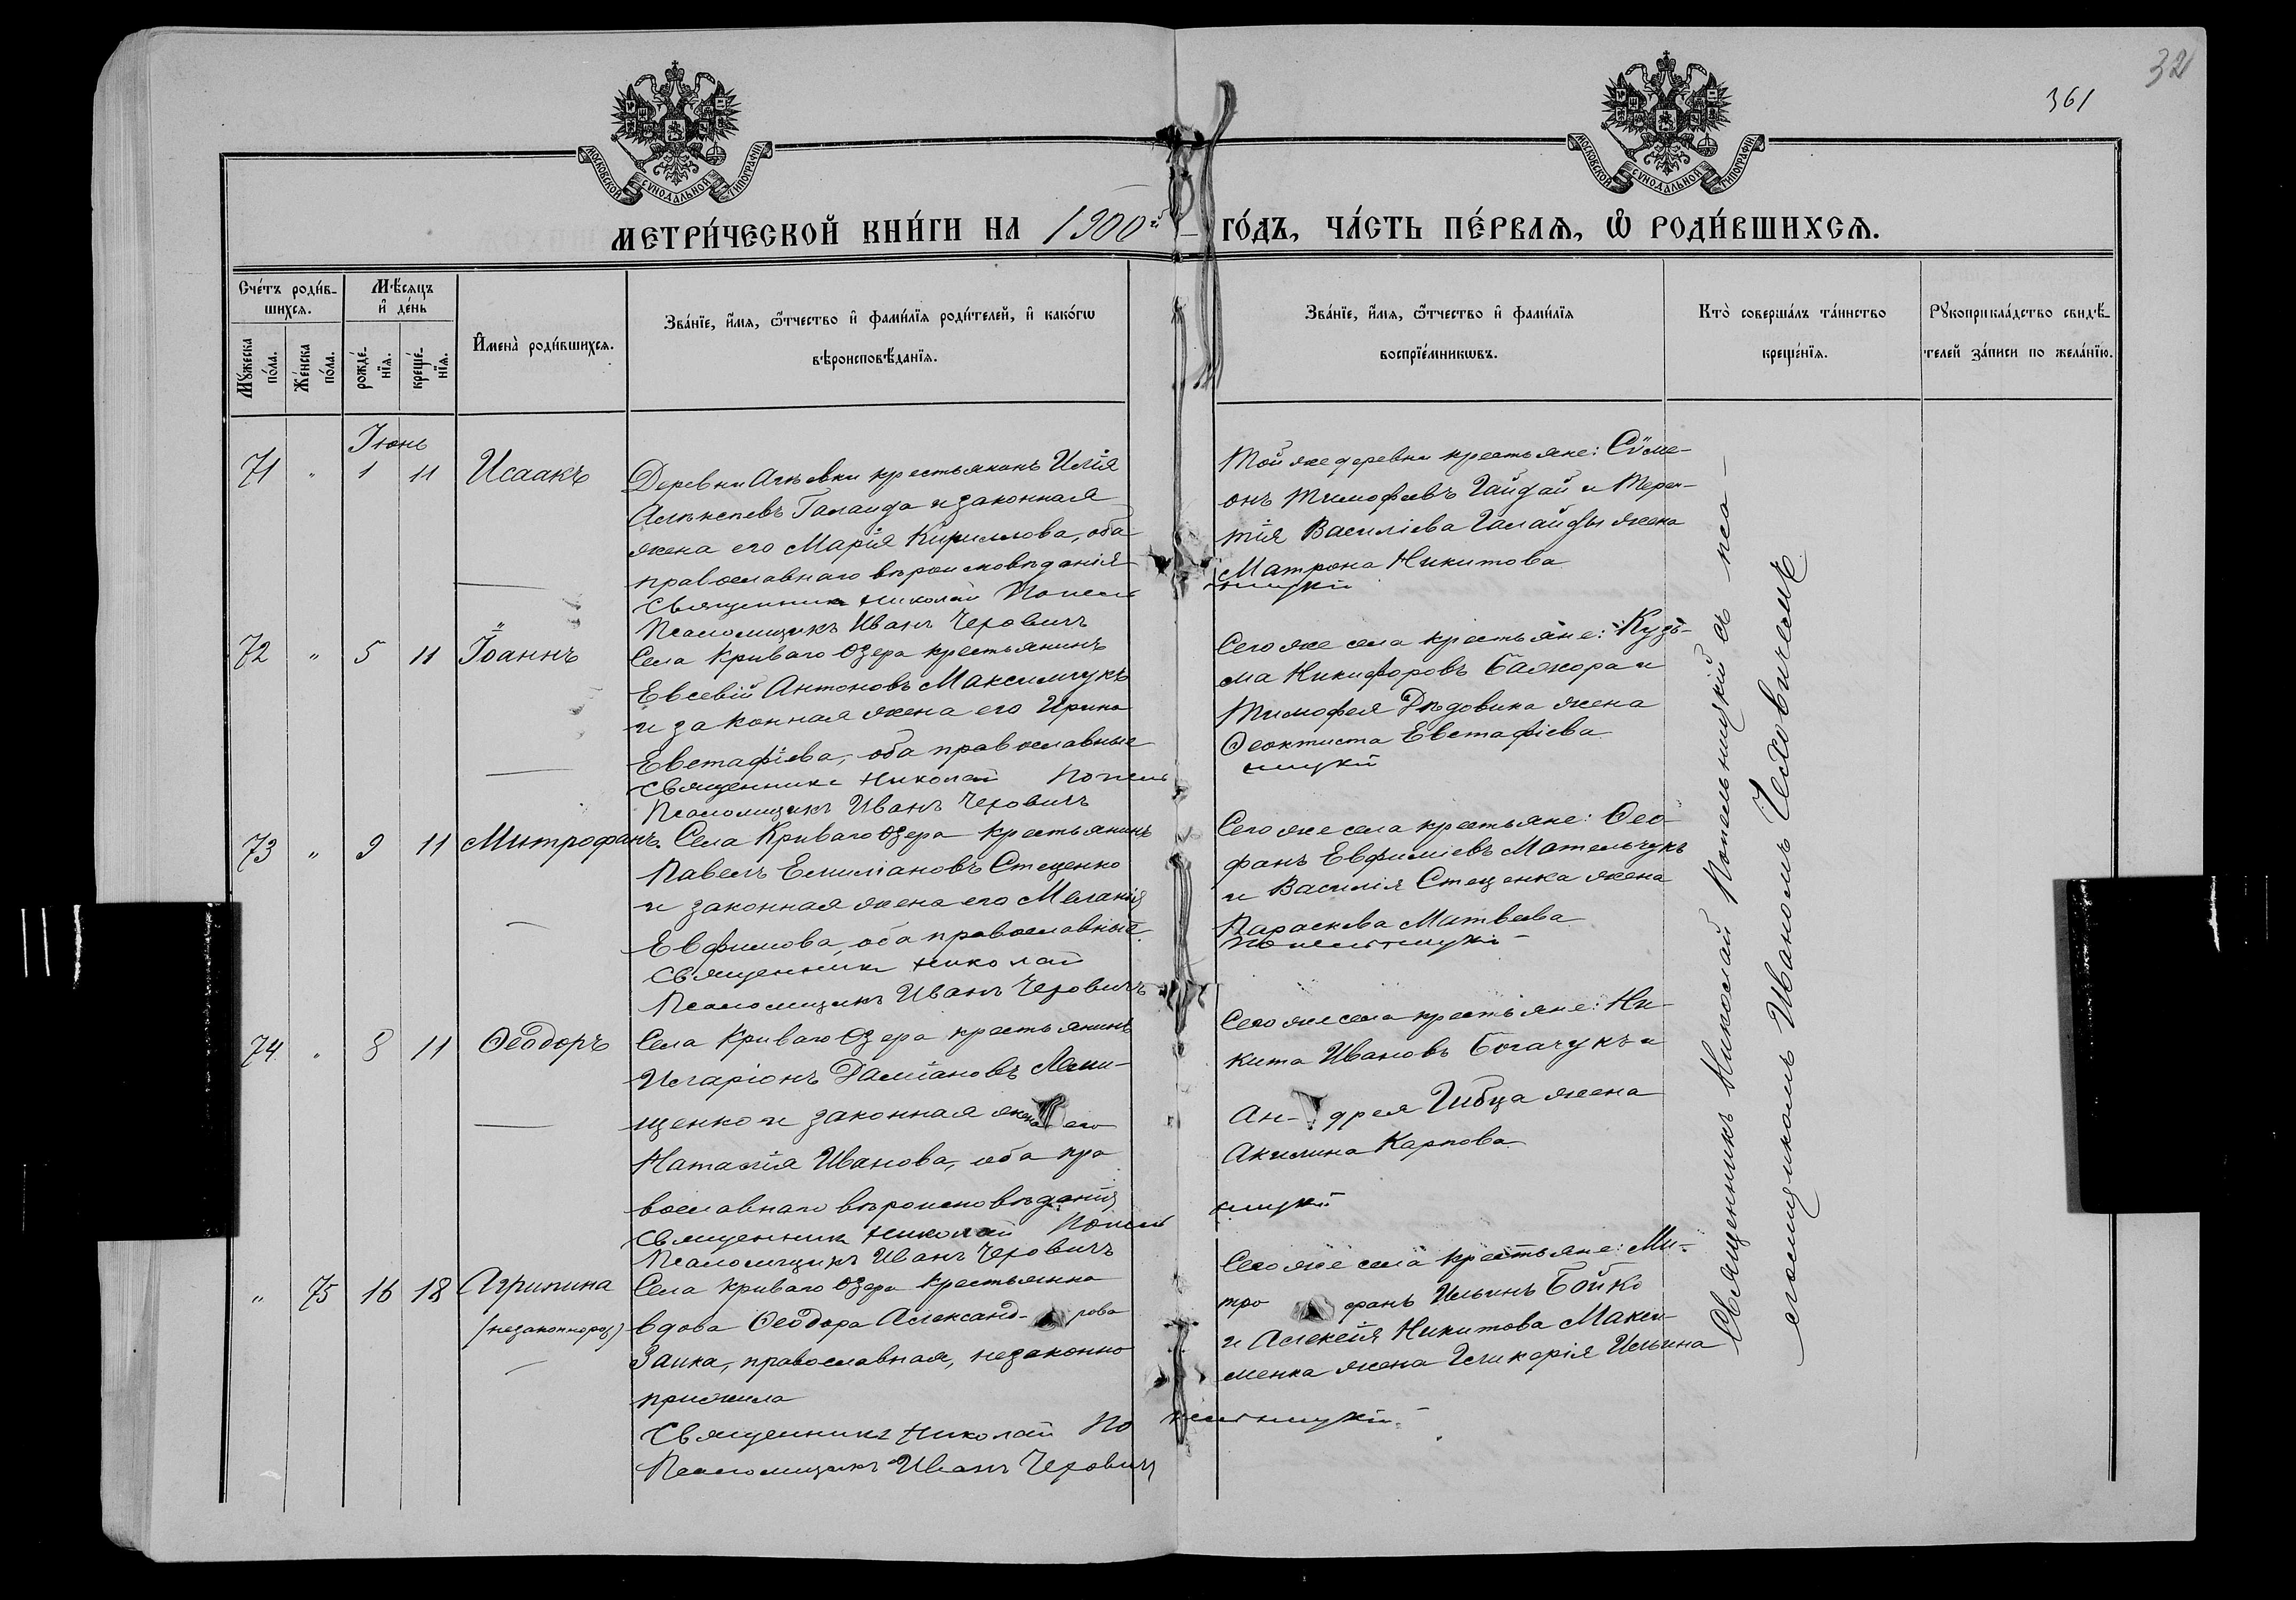 32
361
МОСКОВСКОЙ СѴНОДАЛЬНОЙ ТИПОГРАФІИ
МОСКОВСКОЙ СѴНОДАЛЬНОЙ ТИПОГРАФІИ
МЕТРИ́ЧЕСКОЙ КНИ́ГИ НА 1900й ГО́ДЪ, ЧА́СТЬ ПЕ́РВАЯ, Ѡ РОДИ́ВШИХСЯ.
Сче́тъ роди́в-
шихся.
Мꙋ́жеска по́ла.
Же́нска по́ла.
Мѣ́сяцъ и҆ де́нь
рожде́-нїя.
креще́-нїя.
И҆мена̀ роди́вшихся.
Зва́нїе, и҆́мя, ѻ҆́тчество и҆ фами́лїя роди́телей, и҆ како́гѡ
вѣроисповѣ́данїя.
Зва́нїе, и҆́мя, ѻ҆́тчество и҆ фами́лїя
воспрїе́мникѡвъ.
Кто̀ соверша́лъ та́инство
креще́нїя.
Рꙋкоприкла́дство свидѣ́-
телей за́писи по жела́нїю.
Іюнь
71 " 1 11 Исаакъ
Деревни крестьянинъ Илія
Алексѣевъ Галайда и законная
жена его Марія Кириллова, оба
православнаго вѣроисповѣданія
Священникъ Николай Попель
ницкій
Псаломщикъ Иванъ Чеховичъ
Той же деревни крестьяне: Сѵме-
онъ Тимофеевъ Гайдай и Терен-
тія Василіева Галайды жена
Матрона Никитова
72 " 5 11 Іоаннъ
Села Криваго Озера крестьянинъ
Евсевій Антоновъ Максимчукъ
и законная жена его Ирина
Евстафіева, оба православные
Священникъ Николай Попель
ницкій
Псаломщикъ Иванъ Чеховичъ
Сего же села крестьяне: Кузь-
ма Никифоровъ Бажора и
Тимофея Дѣдовика жена
Ѳеоктиста Евстафіева
73 " 9 11 Митрофанъ
Села Криваго Озера крестьянинъ
Павелъ Емиліановъ Стеценко
и законная жена его Меланія
Евфимова, оба православные
Священникъ Николай
Попельницкій
Псаломщикъ Иванъ Чеховичъ
Сего же села крестьяне: Ѳео-
фанъ Евфиміевъ Мательчукъ
и Василія Стеценка жена
Параскева Матвеева
74 " 8 11 Ѳеодоръ
Села Криваго Озера крестьянинъ
Иларіонъ Даміановъ
щенко и законная жена его
Наталія Иванова, оба пра
вославнаго вѣроисповѣданія
Священникъ Николай Попель
ницкій
Псаломщикъ Иванъ Чеховичъ
Сего же села крестьяне: Ни-
кита Ивановъ Богачукъ и
Ан-дрея Гибца жена
Акилина Карпова
" 75 16 18 Агрипина
(незаконнорож)
Села Криваго Озера крестьянка
вдова Ѳеодора Александ-рова
Заика, православная, незаконно
прижила
Священникъ Николай По
пельницкій
Псаломщикъ Иванъ Чеховичъ
Сего же села крестьяне: Ми-
тро фанъ Ильинъ Бойко
и Алексѣя Никитова Макси-
менка жена Гликерія Ильина
Священникъ Николай Попельницкій съ пса-
ломщикомъ Иваномъ Чеховичемъ